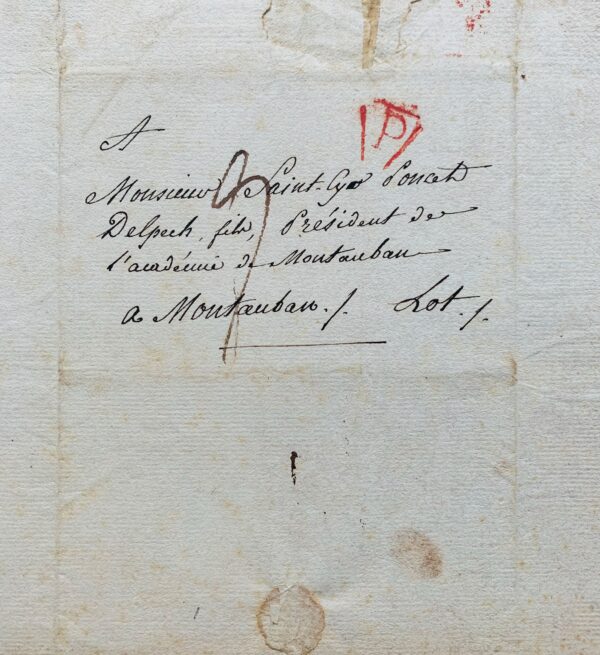 P
A
Monsieur Saint-Cyr Poncet
Delpech, fils, Président de
l'académie de Montauban
a Montauban ./. Lot ./.